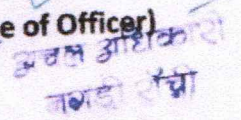 e of Officer)
अंचल अधिकारी
नगड़ी राँची